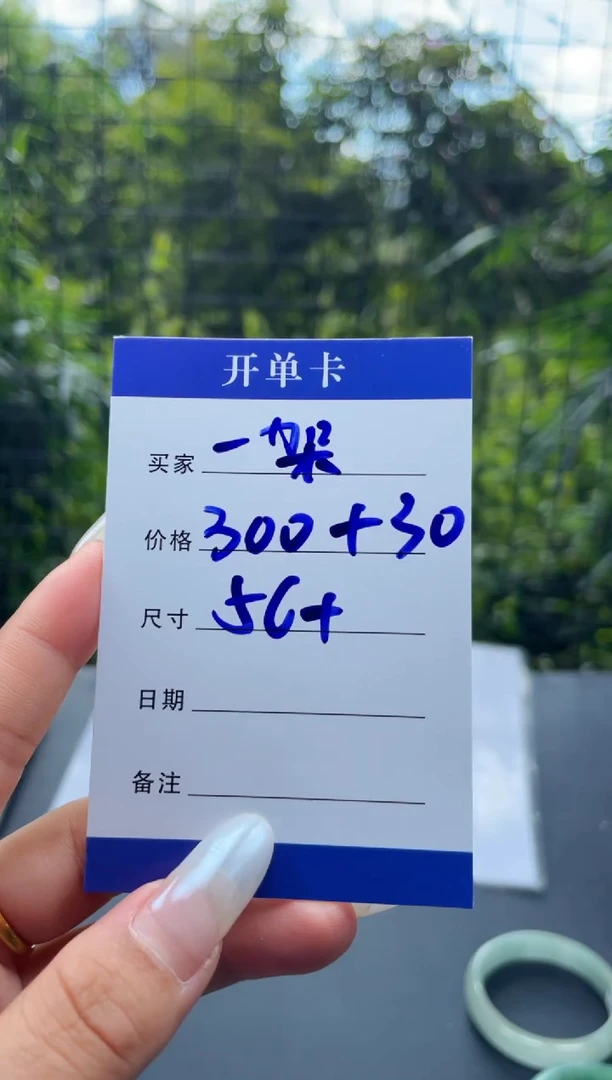 开单卡
买家 一架
价格 300+30
尺寸 56+
日期
备注